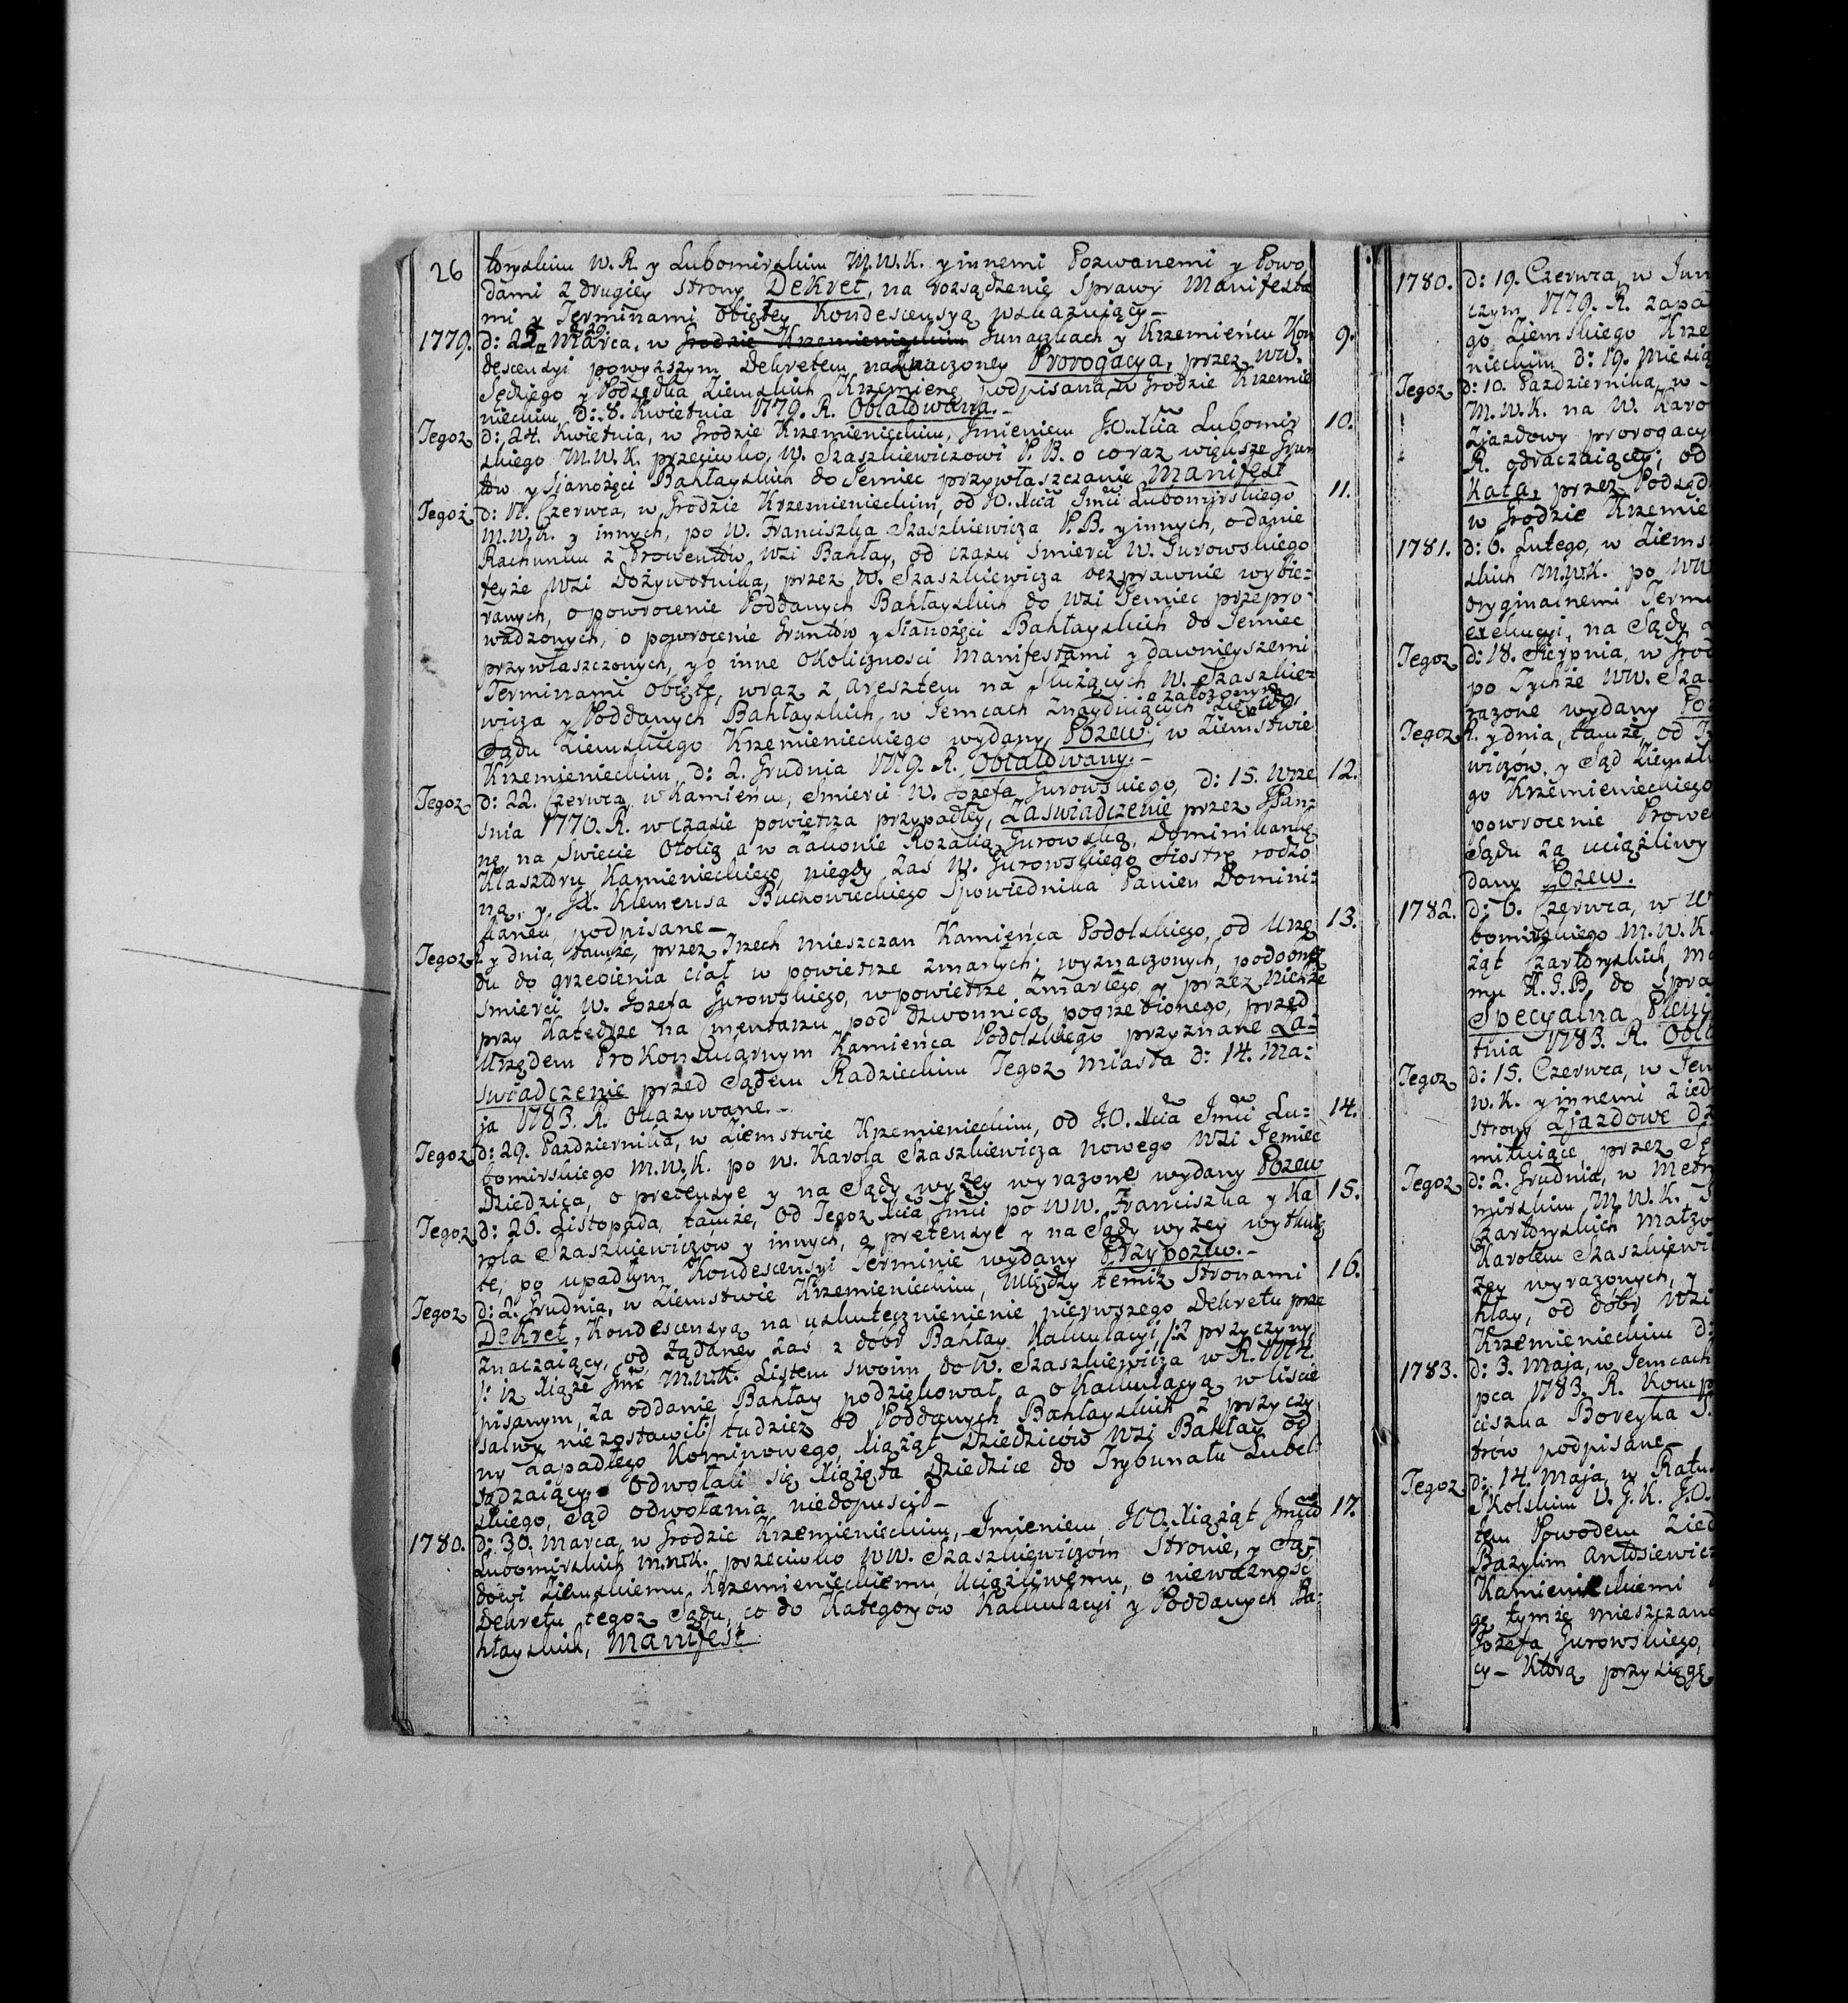 26
toryskim W. R. y Lubomirskim M.W.K. y innemi Pozwanemi y Powo
dami z drugiey strony Dekret, na rozsądzenie Sprawy Manifesta
mi y Terminami obiętey Kondescensyą wskazuiący –
1779. d: Marca, w Grodzie Krzemienieckim Junaczkach y Krzemieńcu Kon 9.
descensyi powyższym Dekretem naznaczoney Prorogacya, przez WW.
Sędziego y Podsędka Ziemskich Krzemienc podpisana, w Grodzie Krzemie
nieckim D: 8. Kwietnia 1779. R. Oblatowana. –
Tegoż d: 24. Kwietnia, w Grodzie Krzemienieckim, Jmieniem J.O. Xcia Lubomir 10.
skiego M.W.K. przeciwko, W. Szaszkiewiczowi P. B. o coraz większe Grun
tow y Sianożęci Bahłayskich do Jemiec przywłaszczanie Manifest
Tegoż d: 17. Czerwca, w Grodzie Krzemienieckim, od JO. Xcia Jmci Lubomirskiego 11.
M.W.K. y innych, po W. Franciszka Szaszkiewicza P.B. y innych, o danie
Rachunku z Prowentów Wsi Bahłay, od czasu Smierci W. Gurowskiego
teyże Wsi Dożywotnika, przez W. Szaszkiewicza bezprawnie wybie=
ranych, o powrocenie Poddanych Bahłayskich do Wsi Jemiec przepro=
wadzonych, o powrocenie Gruntów y Sianożęci Bahłayskich do Jemiec
przywłaszczonych, y o inne okoliczności Manifestami y dawnieyszemi
Terminami obięte, wraz z aresztem na Służących W. Szaszkie=
wicza y Poddanych Bahłayskich w Jemcach znayduiących się założonym do
Sądu Ziemskiego Krzemienieckiego wydany Pozew, w Ziemstwie
Krzemienieckim d: 2. Grudnia 1779. R. Oblatowany. –
Tegoż d: 22. Czerwca w Kamieńcu, Smierci W. Jozefa Gurowskiego, D: 15. Wrze 12.
snia 1770. R. w czasie powietrza przypadłey, Zaswiadczenie przez JPan=
nę na Swiecie Otolią a w Zakonie Rozalią Gurowską, Dominikankę
Klasztoru Kamienieckiego, niegdy zaś W. Gurowskiego Siostrę rodzo
ną, y JX. Klemensa Buchowieckiego Spowiednika Panien Domini=
kanek podpisane –
Tegoż R y dnia, tamże, przez Trzech Mieszczan Kamieńca Podolskiego, od Urzę 13.
du do grzebienia ciał w powietrze zmarłych wyznaczonych, podobneż
Smierci W. Jozefa Gurowskiego, w powietrze Zmarłego, y przez Nichże
przy Katedrze na Cmentarzu pod dzwonnicą pogrzebionego, przed
Urzędem Prokonsularnym Kamieńca Podolskiego przyznane Za=
swiadczenie przed Sądem Radzieckim Tegoż Miasta d: 14. Ma=
ja 1783. R. Okazywane. –
Tegoż d: 29. Pazdziernika, w Ziemstwie Krzemienieckim, od J.O. Xcia Jmci Lu= 14.
bomirskiego M.W.K. po W. Karola Szaszkiewicza nowego Wsi Jemiec
Dziedzica, o pretensye y na Sądy wyżey wyrażone wydany Pozew
Tegoż d: 26. Listopada, tamże, od Tegoż Xcia Jmci po WW. Franciszka y Ka 15.
rola Szaszkiewiczów y innych, o pretensye y na Sądy wyżey wytknię
te, po upadłym Kondescensyi Terminie wydany Przypozew. –
Tegoż d: 2. Grudnia, w Ziemstwie Krzemienieckim, Między temiż Stronami 16.
Dekret, Kondescensyą na uskutecznienienie pierwszego Dekretu prze
znaczaiący, od żądaney zaś z dóbr Bahłay Kalkulacyi, /:z przyczyny
/: iż Xiąże Jmć M.W.K. Listem swoim do W. Szaszkiewicza w R. 1774.
pisanym, za oddanie Bahłay podziękował, a o Kalkulacyą w liście
salwy niezostawił:/ tudzież od Poddanych Bahłayskich z przyczy
ny zapadłego Kominowego, Xiążąt Dziedziców Wsi Bahłay od
sądzaiący. Odwołali się Xiążęta Dziedzice do Trybunału Lubel=
skiego, Sąd odwołania niedopuścił –
1780. d: 30. Marca, w Grodzie Krzemienieckim, Jmieniem J.O. Xiążąt Jmciow 17.
Lubomirskich M.W.K. przeciwko WW. Szaszkiewiczóm Stronie, y Są=
dowi Ziemskiemu Krzemienieckiemu, Uciążliwemu, o nieważność
Dekretu tegoż Sądu, co do Kategoryów Kalkulacyi y Poddanych Ba=
hłayskich, Manifest
1780. d: 19. Czerwca, w Jun
czym 1779. R. zapa
go Ziemskiego Krze
nieckim d: 19. Miesią
Tegoż d: 10. Pazdziernika, w
M.W.K. na W. Karo
Zjazdowy prorogacy
R. odraczaiącey, od
Kata, przez Podsęd
w Grodzie Krzemie
1781. d: 6. Lutego, w Ziems
skich M.W.K. po WW
oryginalnemi Term
exekucyi, na Sądy
Tegoż d: 18. Sierpnia, w Grod
po Tychże WW. Sza
rażone wydany Poz
Tegoż R. y dnia, tamże, od
wiczów, y Sąd Ziemsk
go Krzemienieckiego
powrocenie Prowe
Sądu za uciążliwy
dany Pozew.
1782. d: 6. Czerwca, w
bomirskiego M.W.K.
żąt Czartoryskich, M
mu K.G.B. do Spra
Specyalna Pleni
tnia 1783. R. Obla
Tegoż d: 15. Czerwca, w Jem
W.K. y innemi Zied
strony Zjazdowe
mituiące, przez Sę
Tegoż d: 2. Grudnia, w
mirskim M.W.K.
Czartoryskich Małżo
Karolem Szaszkiewi
żey wyrażonych, y
hłay, od dóbr Wsi
Krzemienieckim d:
1783. d: 3. Maja, w Jemcach
pca 1783. R. Komp
ciszka Boreyka S.
trów podpisane –
Tegoż d: 14. Maja, w Ratu
Skolskim V.G.K. J.O.
tem Powodem Zied
Bazylim Antosiewicz
Kamienieckiemi
gę tymże mieszczano
Jozefa Gurowskiego,
cy – Którą przysięgę